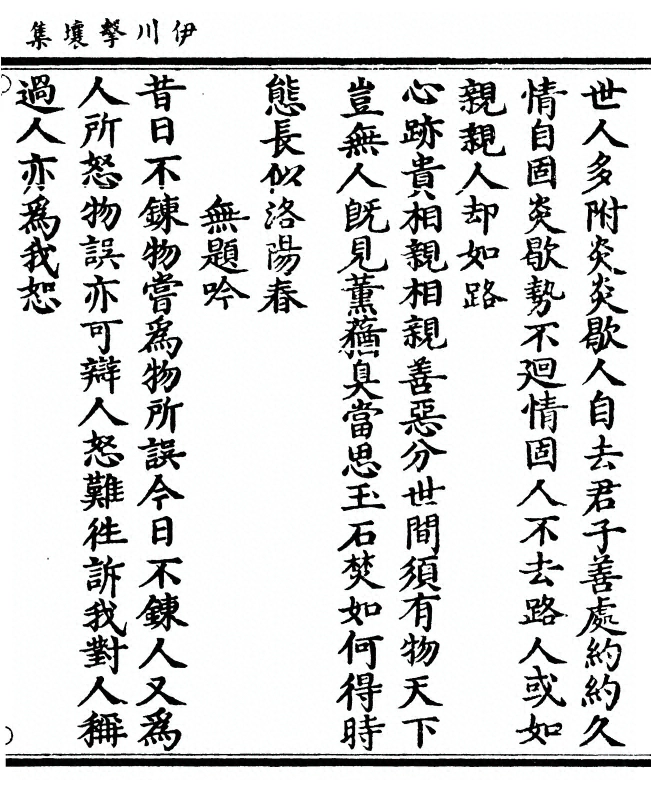 伊川擊壤集
世人多附炎炎歇人自去君子善處約約久
情自固炎歇勢不廻情固人不去路人或如
親親人却如路
心跡貴相親相親善惡分世間須有物天下
豈無人旣見薰蕕臭當思玉石焚如何得時
態長似洛陽春
無題吟
昔日不鍊物嘗爲物所誤今日不鍊人又爲
人所怒物誤亦可辯人怒難徃訴我對人稱
過人亦爲我恕